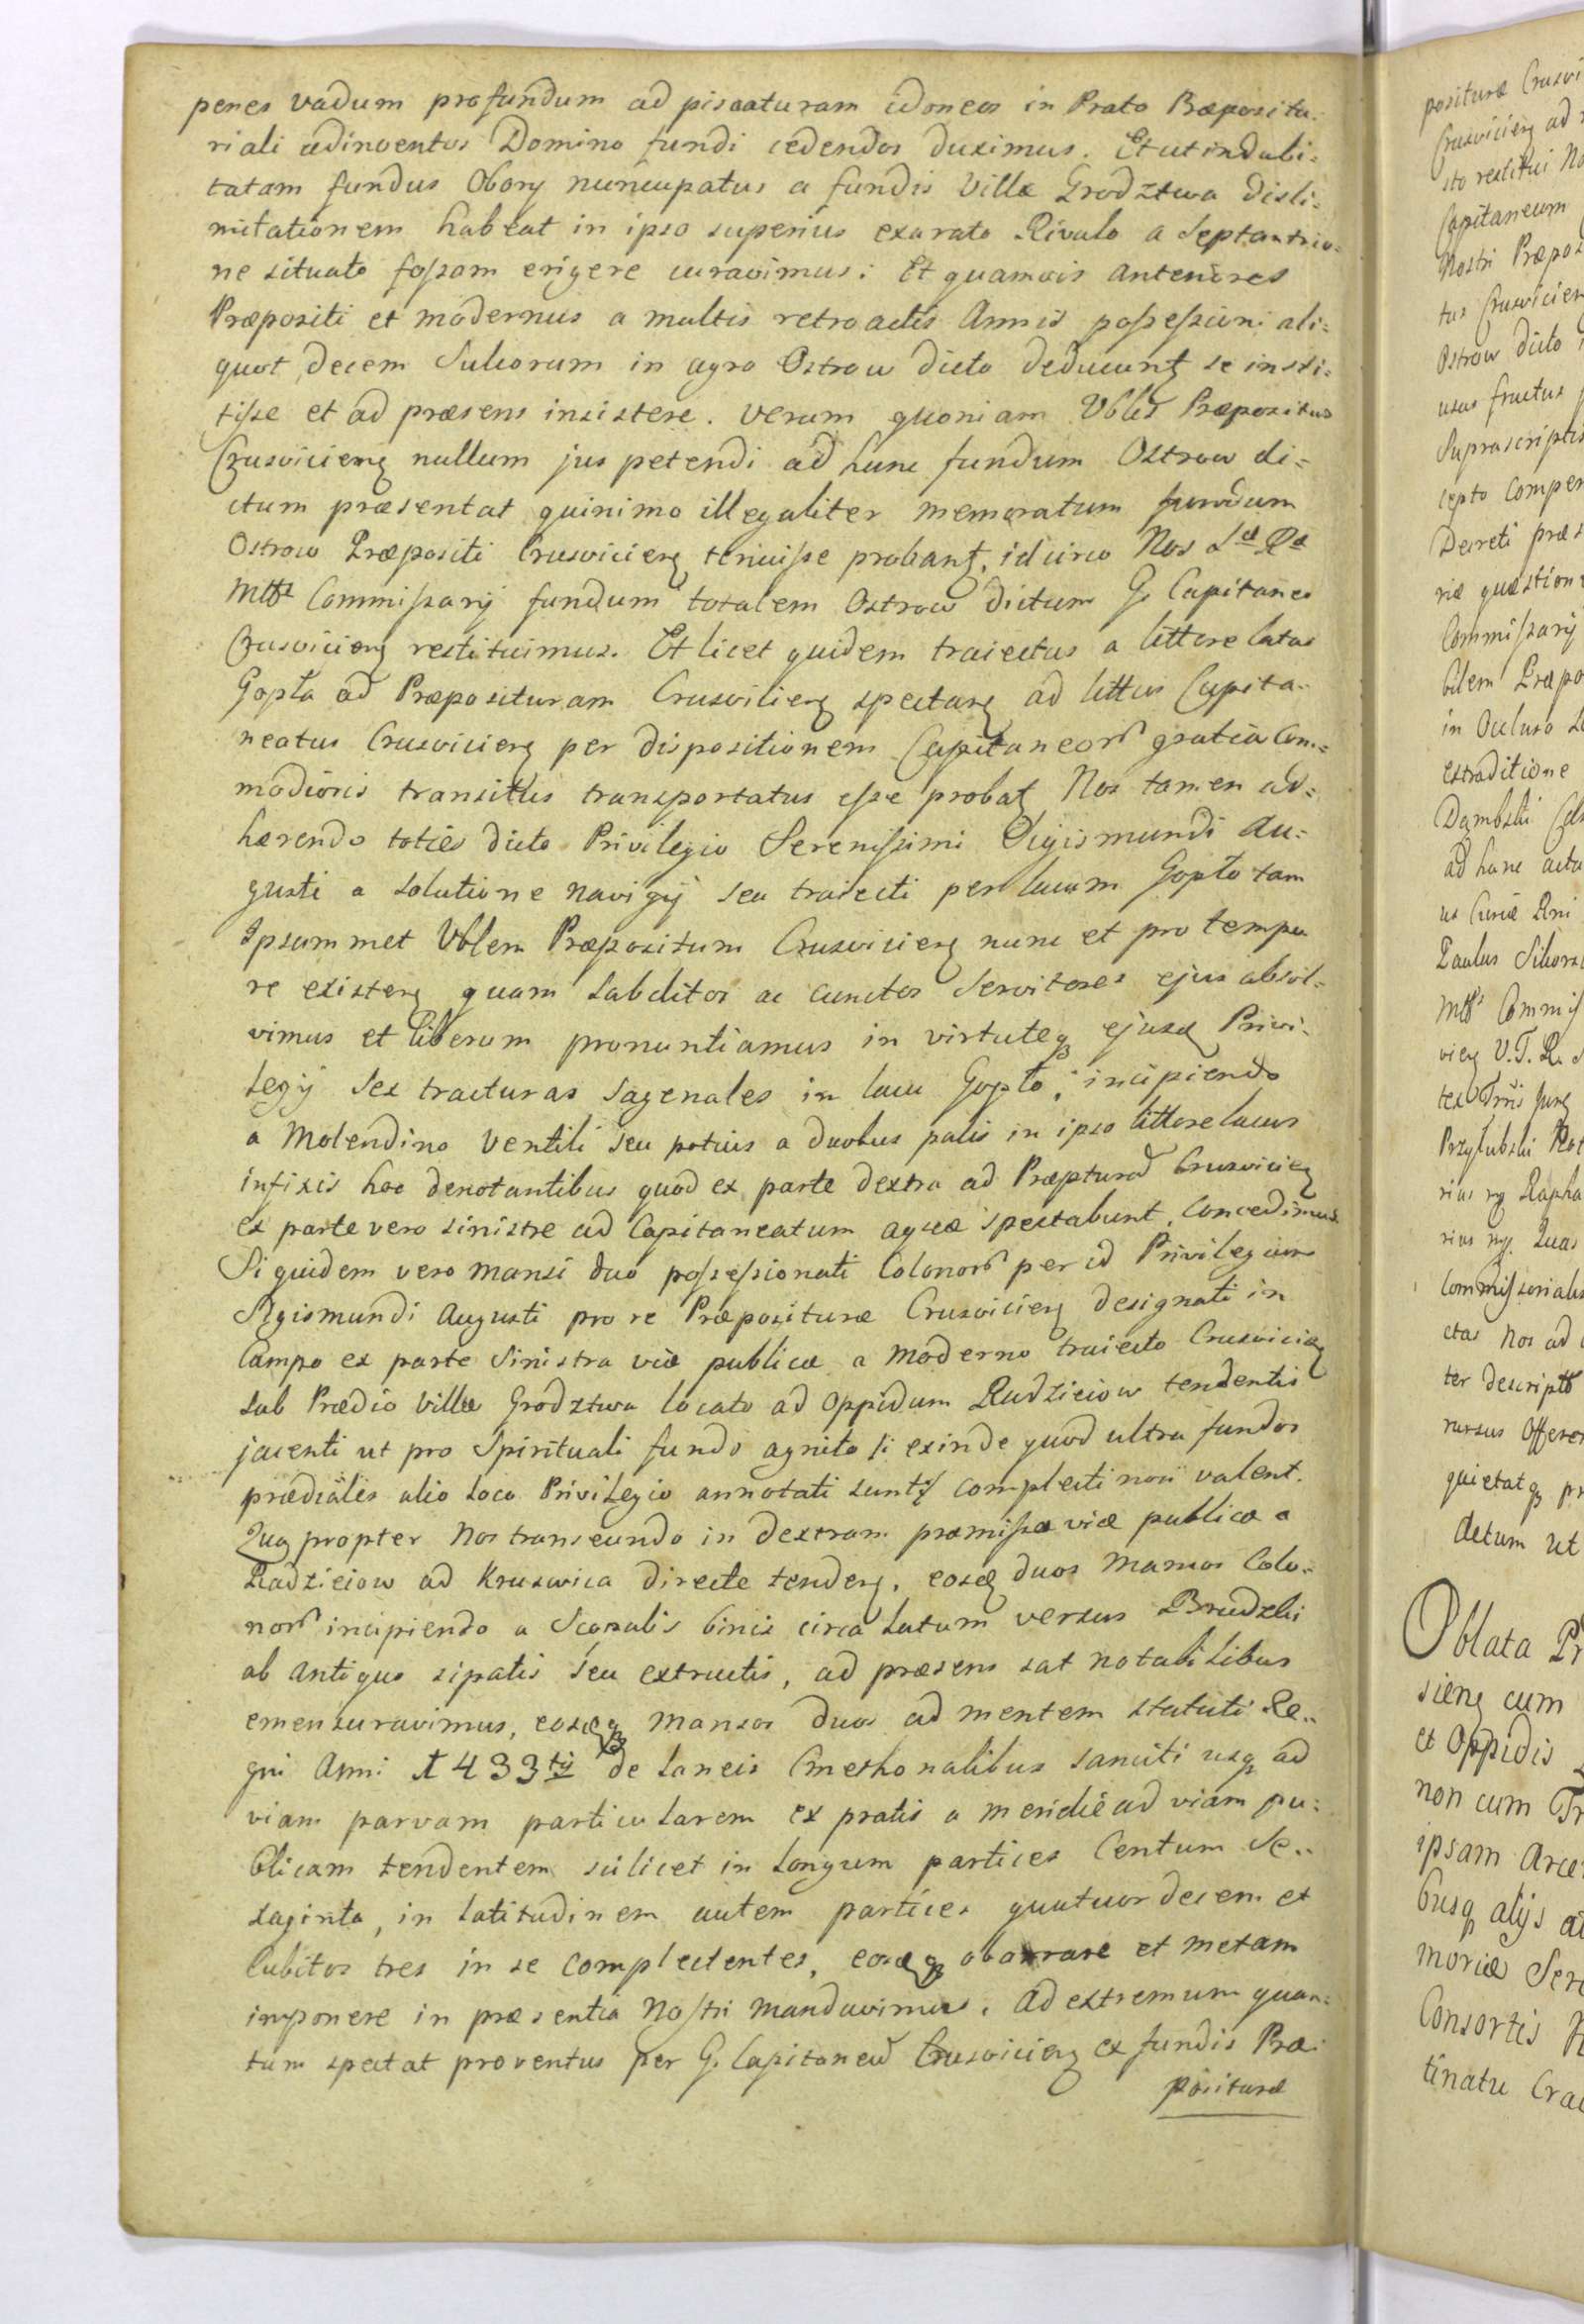 penes vadum profundum ad piscaturam idoneos in Prato Præpositu-
riali adinventos Domino fundi cedendos duximus. Et ut indubi=
tatam fundus Obory nuncupatus a fundis Villæ Grodztwa disli=
mitationem habeat in ipso superius exarato Rivulo a Septentrio=
ne situato fossam erigere curavimus: Et quamvis anteriores
Præpositi et modernus a multis retroactis Annis possessioni ali=
quot decem Sulcorum in agro Ostrow dicto deducunt se insti=
tisse et ad præsens insistere. verum quoniam Vblis Præpositus
Crusvicien nullum jus petendi ad hunc fundum Ostrow di=
ctum præsentat quinimo illegaliter memoratum fundum
Ostrow Præpositi Crusvicien tenuisse probant, idcirco Nos Sæ Ræ
Mttis Commissarij fundum totalem Ostrow dictum G. Capitaneo
Crusvicien restituimus. Et licet quidem traiectus a littore latus
Gopła ad Præposituram Crusvicien spectan ad littus Capita-
neatus Crusvicien per dispositionem Capitaneor gratia Com=
modioris transitus transportatus esse probat Nos tamen ad=
hærendo toties dicto Privilegio Serenissimi Sigismundi Au=
gusti a solutione navigij seu traiecti per lacum Gopło tam
Ipsummet Vblem Præpositum Crusvicien nunc et pro tempo
re existen quam subditos ac cunctos Servitores ejus absol=
vimus et liberum pronuntiamus in virtuteq ejusd Privi-
legij sex tracturas sagenales in lacu Gopło, incipiendo
a Molendino ventili seu potius a duobus palis in ipso littore lacus
infixis hoc denotantibus quod ex parte dextra ad Præptura Crusvicien
ex parte vero sinistre ad Capitaneatum aquæ spectabunt. Concedimus
Siquidem vero mansi duo possessionati Colonor per id Privilegium
Sigismundi Augusti pro re Præposituræ Crusvicien designati in
Campo ex parte Sinistra viæ publicæ a moderno traiecto Crusvicien
sub Prædio villæ Grodztwa locato ad oppidum Radzieiow tendentis
jacenti ut pro Spirituali fundo agnito si exinde quod ultra fundos
prædiales alio loco Privilegio annotati sunt complecti non valent.
Quapropter Nos transeundo in dextram præmissæ viæ publicæ a
Radzieiow ad Kruswica directe tenden, eosd duos Mansos Colo-
nor incipiendo a Scopulis binis circa lutum versus Brudzki
ab antiquo sipatis seu extructis, ad præsens sat notabilibus
emensuravimus, eosdq mansos duos ad mentem statuti Re-
gni Anni 1433tij de Laneis Cmethonalibus sanciti usq ad
viam parvam particularem ex pratis a meridie ad viam pu=
blicam tendentem scilicet in longum partices Centum Se-
xaginta, in latitudinem autem partices quatuordecem et
Cubitos tres in se complectentes, eosdq oborrare et metam
imponere in præsentia Nostri mandavimus. Ad extremum quan=
tum spectat proventus per G. Capitaneu Crusvicien ex fundis Præ-
posituræ
posituræ Crusvi
Crusvicien ad
sto restitui No
Capitaneum
Nostri Præpos
tus Crusvicien
Ostrow dicto
usus fructus
Suprascriptis
cepto Compen
Decreti præs
riæ quæstion
Commissarij
bilem Præpo
in Ocluso
extraditione
Dąmbski
ad hunc actu
us Curiæ Rni
Paulus Sikors
Mttis Commis
vien V.T.R.
tes
Przyłubski Not
rius rg Rapha
rius rg. Quas
Commissorialis
ctas Nos ad
ter descript
rursus Offeren
quietatq pr
Actum ut
Oblata Pr
sien cum
et Oppidis
non cum Tr
ipsam Arce
busq alijs a
moriæ Sere
Consortis
tinatu Crac